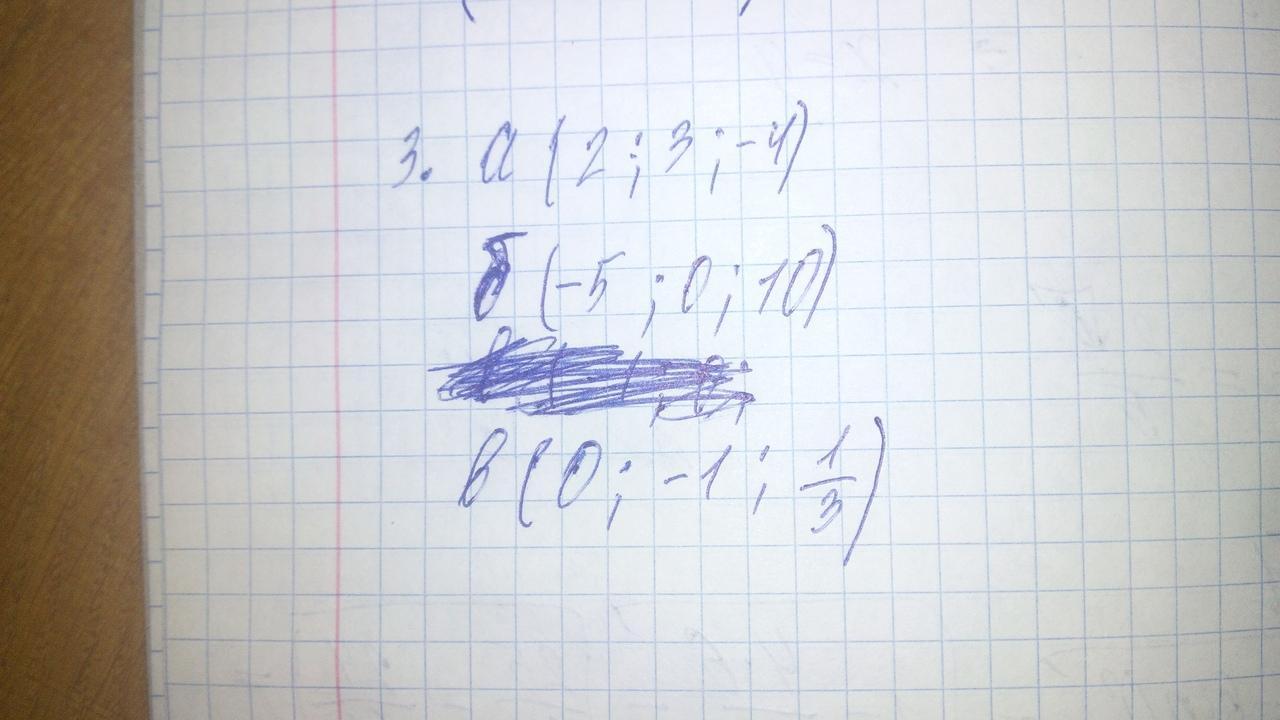 3. а (2 ; 3 ; -4)
б (-5 ; 0 ; 10)
в (0 ; -1 ; 1/3)